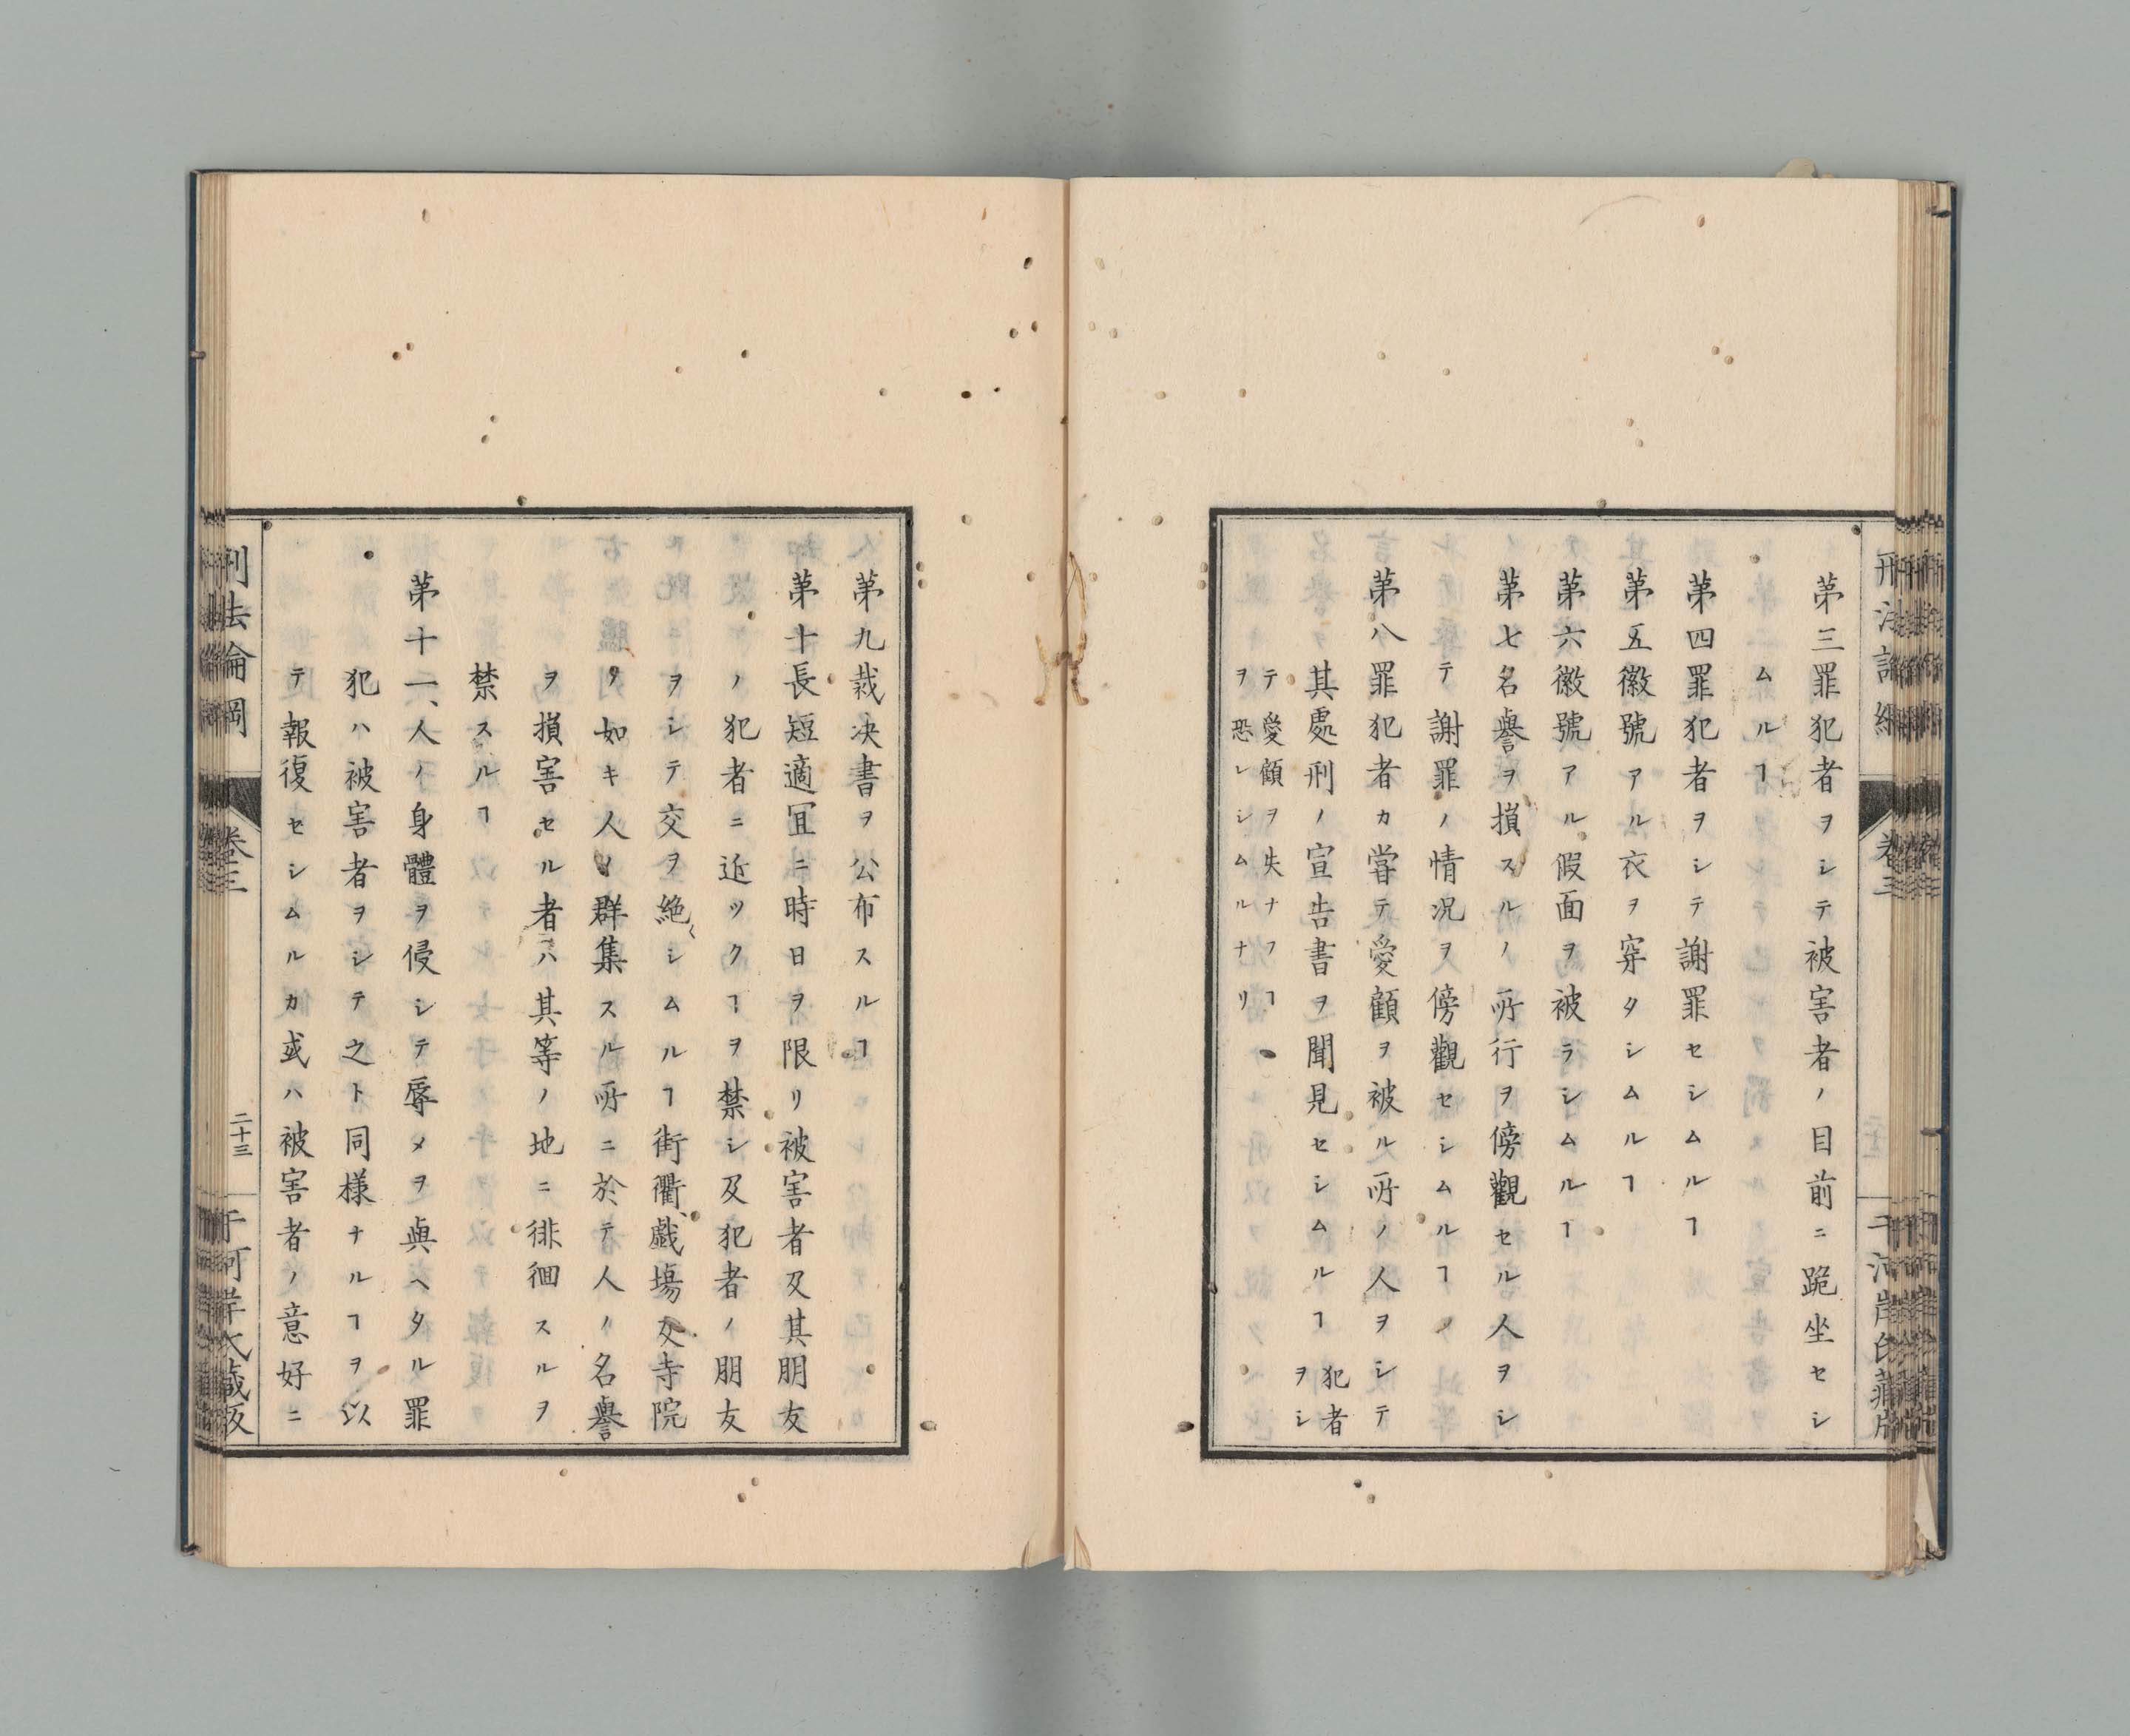 第三罪犯者ヲシテ被害者ノ目前ニ跪坐セシ
ムルヿ
第四罪犯者ヲシテ謝罪セシムルヿ
第五徽號アル衣ヲ穿タシムルヿ
第六徽號アル假面ヲ被ラシムルヿ
第七名譽ヲ損スルノ所行ヲ傍觀セル人ヲシ
テ謝罪ノ情况ヲ傍觀セシムルヿ
第八罪犯者カ甞テ愛顧ヲ被ル所ノ人ヲシテ
其處刑ノ宣告書ヲ聞見セシムルヿ犯者ヲシ
テ愛顧ヲ失ナフヿ
ヲ恐レシムルナリ
第九裁决書ヲ公布スルヿ
第十長短適冝ニ時日ヲ限リ被害者及其朋友
ノ犯者ニ近ツクヿヲ禁シ及犯者ノ朋友
ヲシテ交ヲ絶シムルヿ街衢、戯塲及寺院
ノ如キ人ノ群集スル所ニ於テ人ノ名譽
ヲ損害セル者ハ其等ノ地ニ徘徊スルヲ
禁スルヿ
第十一、人ノ身體ヲ侵シテ辱メヲ與ヘタル罪
犯ハ被害者ヲシテ之ト同樣ナルヿヲ以
テ報復セシムルカ或ハ被害者ノ意好ニ
刑法論綱
卷三
二十三